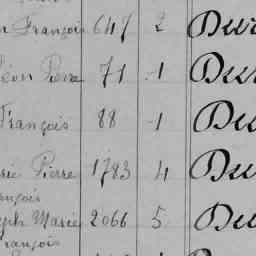 n François 647 2 Dur
Léon Pierre 71 1 Du
François 88 1 Du
Pierre 1783 4 Du
ançois
eph Marie 2066 5 Du
François